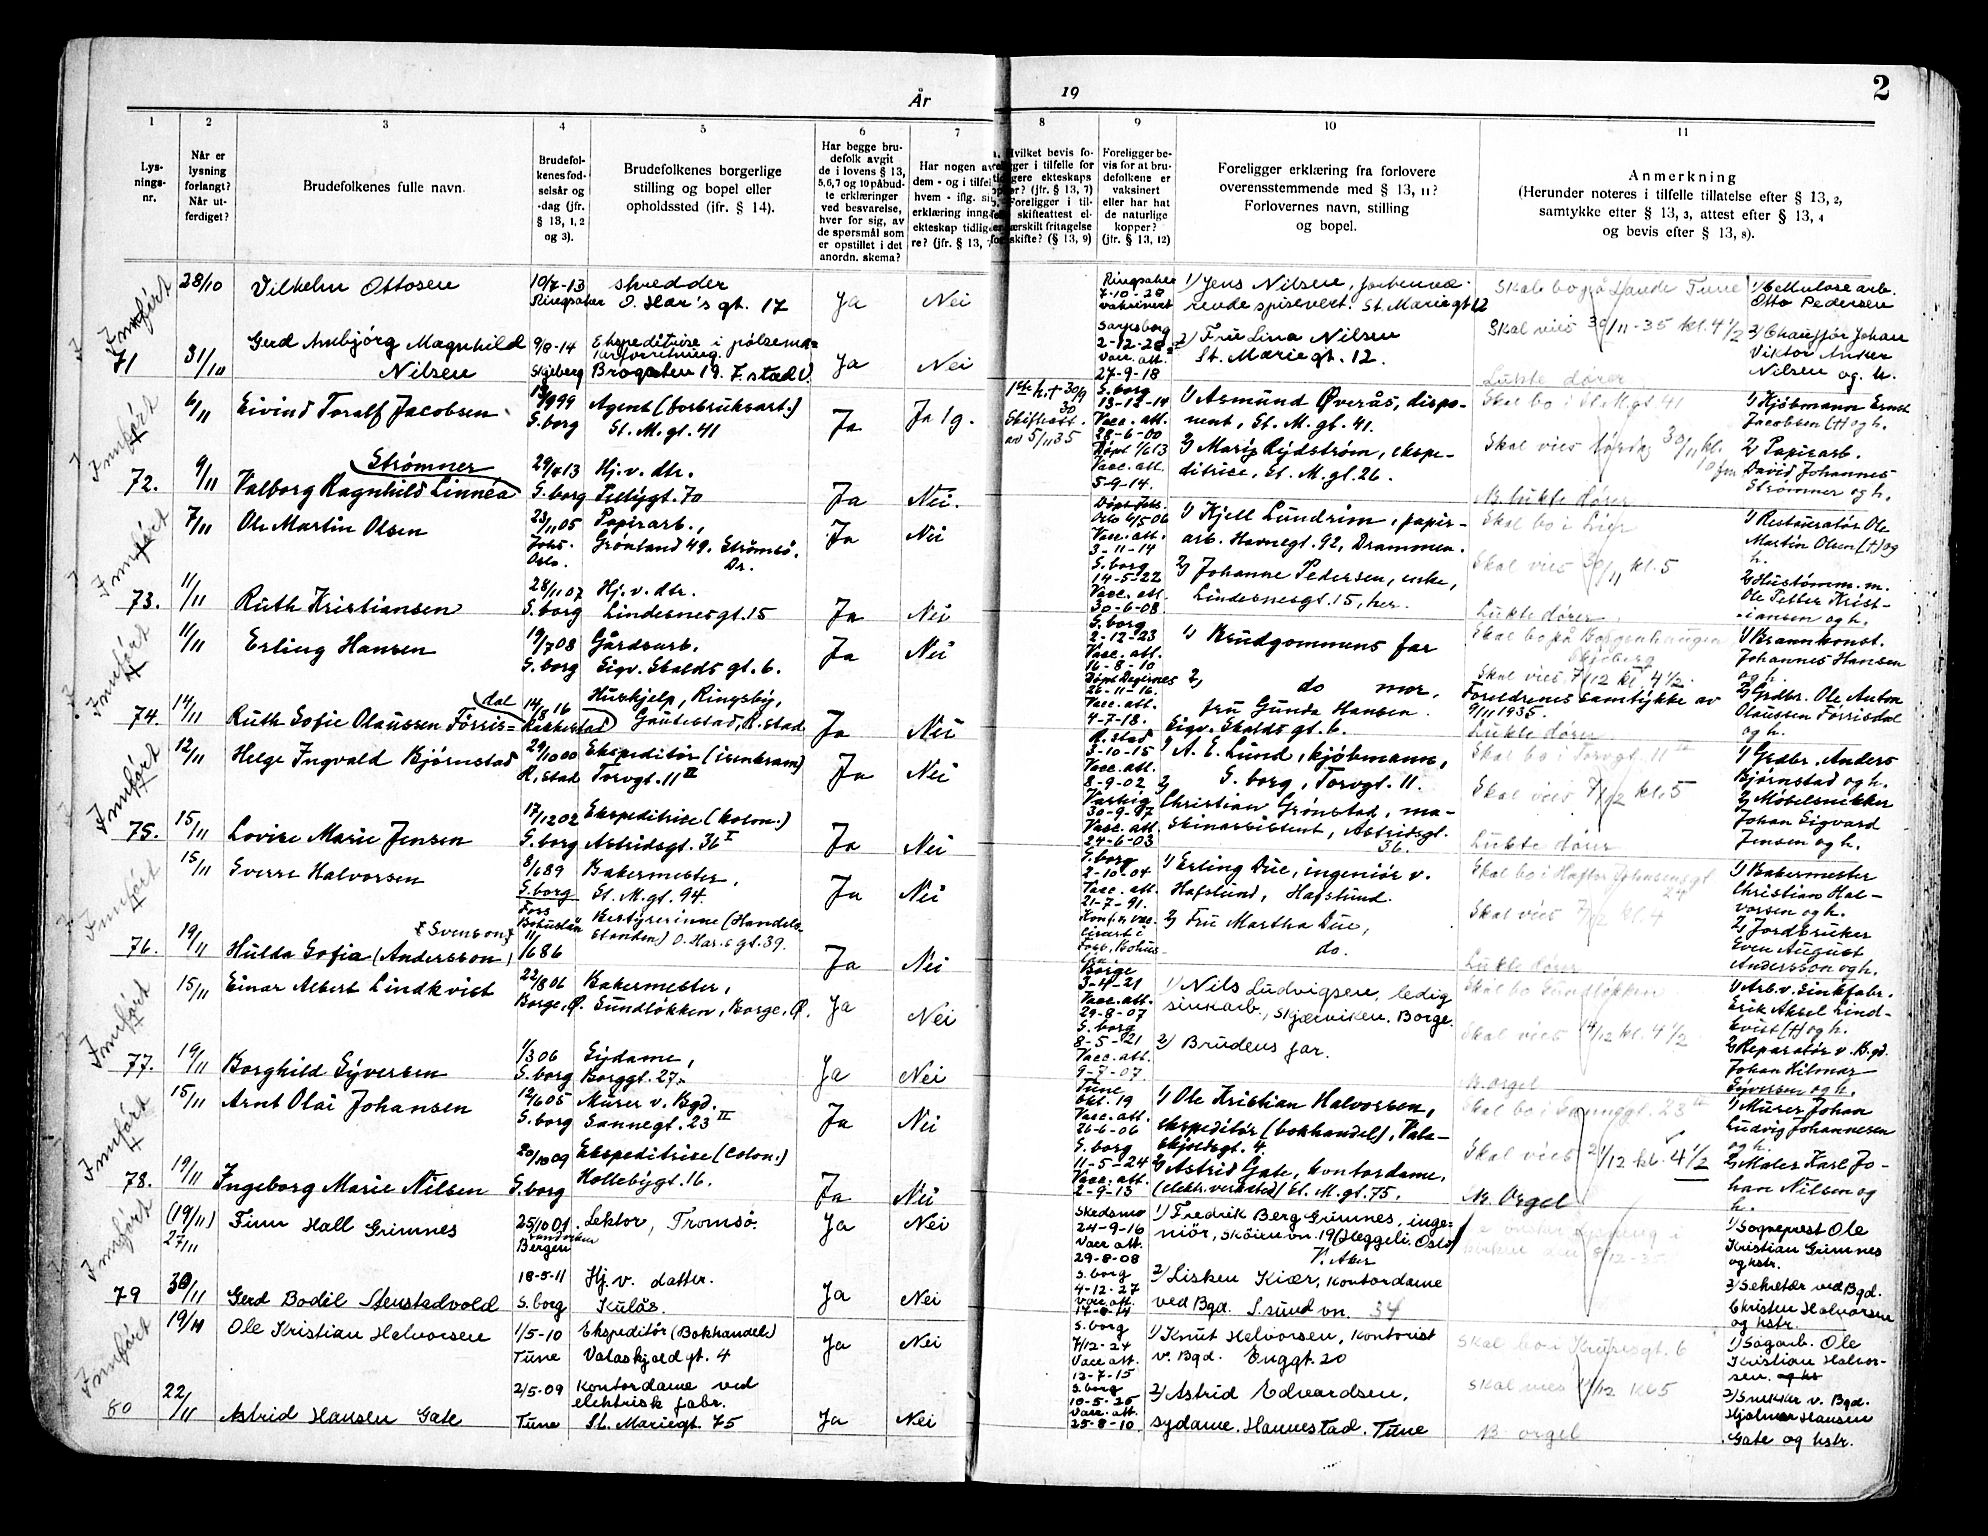 År 19
2
1 2 3 4 5 6 7 8 9 10 11
Lys-
nings-
nr.
Når er
lysning
forlangt?
Når ut-
ferdiget?
Brudefolkenes fulle navn.
Brudefol-
kenes fød-
selsår og
-dag (jfr.
§ 13, 1, 2
og 3).
Brudefolkenes borgerlige
stilling og bopel eller
opholdssted (jfr. § 14).
Har begge bru-
defolk avgit
de i lovens § 13,
5,6,7 og 10 påbud-
te erklæringer
ved besvarelse,
hver for sig, av
de spørsmål som
er opstillet i det
anordn. skema?
Har nogen av
dem - og i tilfel
hvem - iflg. si
erklæring inng
ekteskap tidlig
re? (jfr. § 13,
Hvilket bevis fo-
ger i tilfelle for
gere ekteskaps
? (jfr. § 13, 7)
Foreligger i til-
skifteattest el-
ærskilt fritagelse
skifte? (§ 13, 9)
Foreligger be-
vis for at bru-
defolkene er
vaksinert
eller har hat
de naturlige
kopper?
(jfr. § 13, 12)
Foreligger erklæring fra forlovere
overensstemmende med § 13, 11?
Forlovernes navn, stilling
og bopel.
Anmerkning
(Herunder noteres i tilfelle tillatelse efter § 13, 2,
samtykke efter § 13, 3, attest efter § 13, 4
og bevis efter § 13, 8).
Innført
71
28/10 Vilhelm Ottosen 10/7-13 skredder
Ringsaker O. Har's gt. 17 Ja Nei
Ringsaker
7-10-28
vaksinert
1) Jens Nilsen, forhenvæ-
rende spisevert. St. Marie gt 12
Skal bo på Sande Tune
1) Cellulose arb.
Otto Pedersen
31/10 Gerd Ambjørg Magnhild
Nilsen
9/8-14
Skjeberg
Ekspeditrise i pølsema-
Brogaten 19. F.stad V. Ja Nei
Sarpsborg
2-12-28
Vacc. att.
27-9-18
2) Fru Lina Nilsen
St. Marie gt. 12.
Skal vies 30/11-35 kl. 4 1/2
Lukte dører
2) Chauffør Johan
Viktor Anker
Nilsen og h.
Innført
72.
6/11 Eivind Toralf Jacobsen
S. borg
Agent (forbruksart.)
St. M. gt. 41 Ja Ja 1 g.
1ste h. + 30/9
30
Skifteatt.
av 5/11 35
S. borg
13-12-14
Vacc. att.
28-6-00
1) Asmund Øverås, dispo-
nent, St. M. gt. 41.
Skal bo i St. M. gt 41
Skal vies lørdag 30/11 kl.
10 fm
1) Kjøbmann Ernst
Jacobsen (†) og h.
9/11 Strømner
Valborg Ragnhild Linnéa
S. borg
Hj. v. dtr.
70 Ja Nei.
Døpt 1/6 13
Vacc. att.
5-9-14.
2) Marie Rydstrøm, ekspe-
ditrice, St. M. gt. 26.
N. lukte dører
2) Papirarb.
David Johannes
Strømner og h.
Innført
73.
7/11 Ole Martin Olsen
23/11 05
Johs.
Oslo.
Papirarb.,
Grønland 49. Strømsø.
Dr. Ja Nei
Oslo 6/5 06
Vacc. att.
3-11-14
1) Kjell Lundrim, papir-
arb. Havnegt. 92, Drammen.
Skal vies 30/11 kl. 5
1) Restauratør Ole
Martin Olsen (†) og
h.
11/11 Ruth Kristiansen
28/11 07
S. borg
Hj. v. dtr.
Lindesnesgt. 15 Ja Nei
S. borg
14-5-22
Vacc. att.
30-6-08
2) Johanne Pedersen, enke,
Lindesnesgt. 15, her.
Lukte dører
2) Hustømm. m.
Ole Petter Krist-
iansen og h.
Innført
74.
11/11 Erling Hansen
19/7 08
S. borg
Gårdsarb.
Sigv. Skalds gt. 6. Ja Nei
S. borg
2-12-23
Vacc. att.
16-8-10
1) Brudgommens far
Skal bo på Borgenhaugen
Skjeberg
Skal vies 7/12 kl. 4 1/2.
1) Brannkonst.
Johannes Hansen
og h.
14/11 Ruth Sofie Olaussen Førris=
dal
14/8 16
Rakkestad
Hushjelp, Ringsby,
Gautestad, R. stad Ja Nei
26-11-16.
Vacc. att.
4-7-18.
2) do mor,
fru Gunda Hansen.
Sigv. Skalds gt. 6.
Foreldrenes samtykke av
9/11 1935.
Lukte dører
2) Grdbr. Ole Anton
Olaussen Førrisdal
og h.
Innført
75.
12/11 Helge Ingvald Bjørnstad
29/10 00
R. stad
Ekspeditør (isenkram)
Torvgt. 11 II Ja Nei
R. stad
3-10-15
Vacc. att.
8-9-02
1) A. E. Lund, kjøbmann,
S. borg, Torvgt. 11.
Skal bo i Torvgt. 11 II
Skal vies 7/12 kl. 5
1) Grdbr. Anders
Bjørnstad og h.
15/11 Lovise Marie Jensen
17/12 02
S. borg
Ekspeditrise (kolon.)
Astridsgt. 36 I Ja Nei
Varteig
30-9-17
Vacc. att.
24-6-03
2) Christian Grønstad, ma-
skinassistent, Astridsgt.
36.
Lukte dører
2) Møbelsnikker
Johan Sigvard
Jensen og h.
Innført
76.
15/11 Sverre Halvorsen
8/6 89
S. borg
Bakermester,
St. M. gt. 94. Ja Nei
S. borg
2-10-04
Vacc. att.
21-7-91.
1) Erling Due, ingeniør v.
Hafslund, Hafslund.
Skal bo i Haftor Johnsensgt
24
Skal vies 7/12 kl. 4
1) Bakermester
Christian Hal-
vorsen og h.
19/11 Svenson
Hulda Sofia (Andersson)
Foss
Bohuslän
11/1 86
Bestyrerinne (Handels-
standen) O. Har.s gt. 39. Ja Nei
Konf. & vac-
cinert i
Foss, Bohus-
2) Fru Martha Due,
do.
Lukte dører
2) Jordbruker
Even August
Andersson og h.
Innført
77.
15/11 Einar Albert Lindkvist
22/8 06
Borge, Ø.
Bakermester,
Sundløkken, Borge, Ø. Ja Nei
Borge
3-4-21
Vacc. att.
29-8-07
1) Nils Ludvigsen, ledig
sinkarb., Skjærviken. Borge.
Skal bo Sundløkken
Skal vies 14/12 kl. 4 1/2
1) Arb. v. Sinkfabr.
Erik Aksel Lind-
kvist (†) og h.
19/11 Borghild Syversen
1/3 06
S. borg
Sydame,
Borggt. 27. Ja Nei
S. borg
8-5-21
Vacc. att.
9-7-07.
2) Brudens far.
N. Orgel
2) Reparatør v. Bgd.
Johan Hilmar
Syversen og h.
Innført
78.
15/11 Arnt Olai Johansen
12/6 05
S. borg
Murer v. Bgd.
Sannegt. 23 II Ja Nei
Tune
okt. 19
Vacc. att.
26-6-06
1) Ole Kristian Halvorsen,
ekspeditør (bokhandel), Vala-
skjoldsgt. 4.
Skal bo i Sannegt. 23 II
Skal vies 21/12 kl. 4 1/2
1) Murer Johan
Ludvig Johannesen
og h.
19/11 Ingeborg Marie Nilsen
20/10 09
S. borg
Ekspeditrise (Colon.)
Hollebygt. 16. Ja Nei
S. borg
11-5-24
Vacc. att.
2-9-13
2) Astrid Gate, kontordame,
(elektr. verksted) St. M. gt. 75.
N. Orgel
2) Maler Karl Jo-
han Nilsen og
h.
Innført
79
(19/11)
27/11 Finn Hall Grimnes
25/10 01.
Bergen
Lektor, Tromsø. Ja Nei
Skedsmo
24-9-16
Vacc. att.
29-8-08
1) Fredrik Berg Grimnes, inge-
niør, Skøienvn. 19 (Heggeli. Oslo)
V. Aker
1) Sogneprest Ole
Kristian Grimnes
og hstr.
30/11 Gerd Bodil Stenstadvold
18-5-11
S. borg
Hj. v. datter.
Kulås. Ja Nei
S. borg
4-12-27
Vacc. att.
17-8-14
2) Lisken Kiær, kontordame
ved Bgd. S.sund vn. 34
2) Sekretær ved Bgd.
Christen Halvorsen
og hstr.
Innført
80
19/11 Ole Kristian Halvorsen
1/5-10
Tune
Ekspeditør (Bokhandel)
Valaskjold gt. 4 Ja Nei
S. borg
7/12-24
Vacc att.
12-7-15
1) Knut Halvorsen, kontorist
v. Bgd. Enggt. 20
Skal bo i Kruses gt. 6
Skal vies 14/12 kl 5
1) Sagarb. Ole
Kristian Halvor-
sen. og hs
22/11 Astrid Hansen Gate
2/5-09
Tune
Kontordame ved
elektrisk fabr.
St. Mariegt. 75 Ja Nei
S. borg
10-5-25
Vacc. att.
25-8-10
2) Astrid Edvardsen,
sydame. Hannestad. Tune
N orgel
2) Snekker v. Bgd.
Hjalmar Hansen
Gate og hstr.